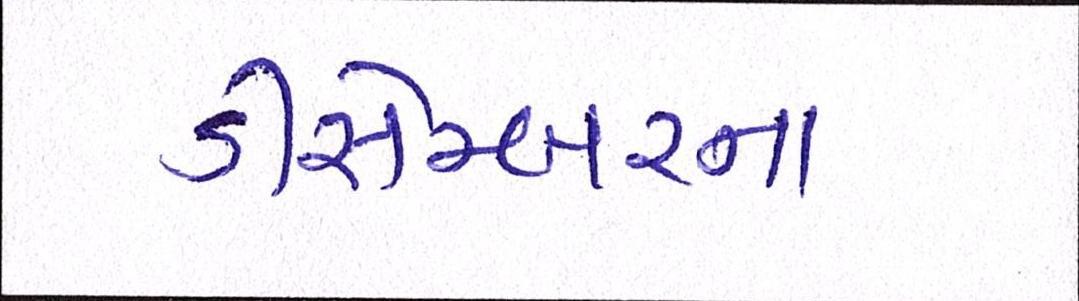 ડીસેમ્બરના